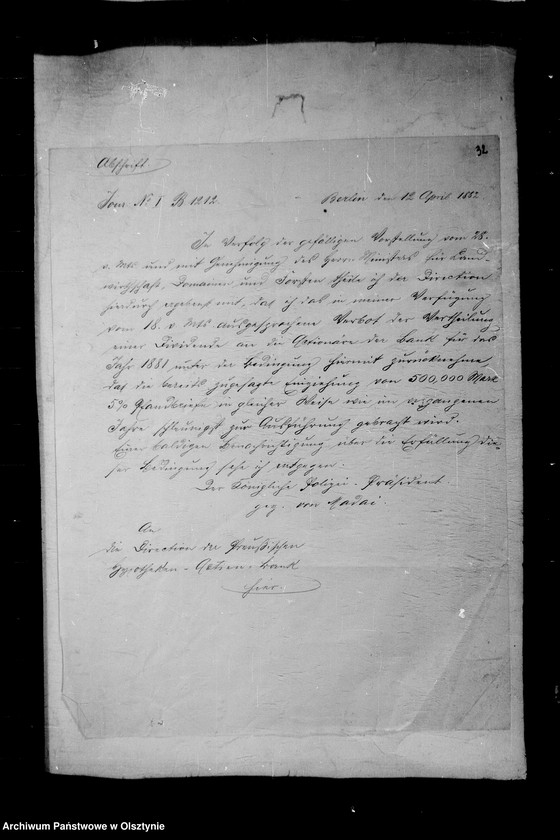 32
Abschrift
Jour. No I B 1212.
Berlin den 12 April 1882
In Verfolg der gefälligen Vorstellung vom 28.
v. Mts und mit Genehmigung des Herrn Ministers für Land-
wirthschaft, Domainen und Forsten theile ich der Direction
hierdurch ergebenst mit, daß ich das in meiner Verfügung
vom 18. v. Mts ausgesprochene Verbot der Vertheilung
einer Dividende an die Actionäre der Bank für das
Jahr 1881 unter der Bedingung hiermit zurücknehme
daß die bereits zugesagte Einziehung von 500,000 Mark
5% Pfandbriefe in gleicher Weise wie im vergangenen
Jahre schleunigst zur Ausführung gebracht wird.
Einer baldigen Benachrichtigung über die Erfüllung die-
ser Bedingung sehe ich entgegen.
Der Königliche Polizei-Präsident
gez. von Madai.
An
die Direction der Preußischen
Hypotheken-Actien-Bank
hier.
Archiwum Państwowe w Olsztynie